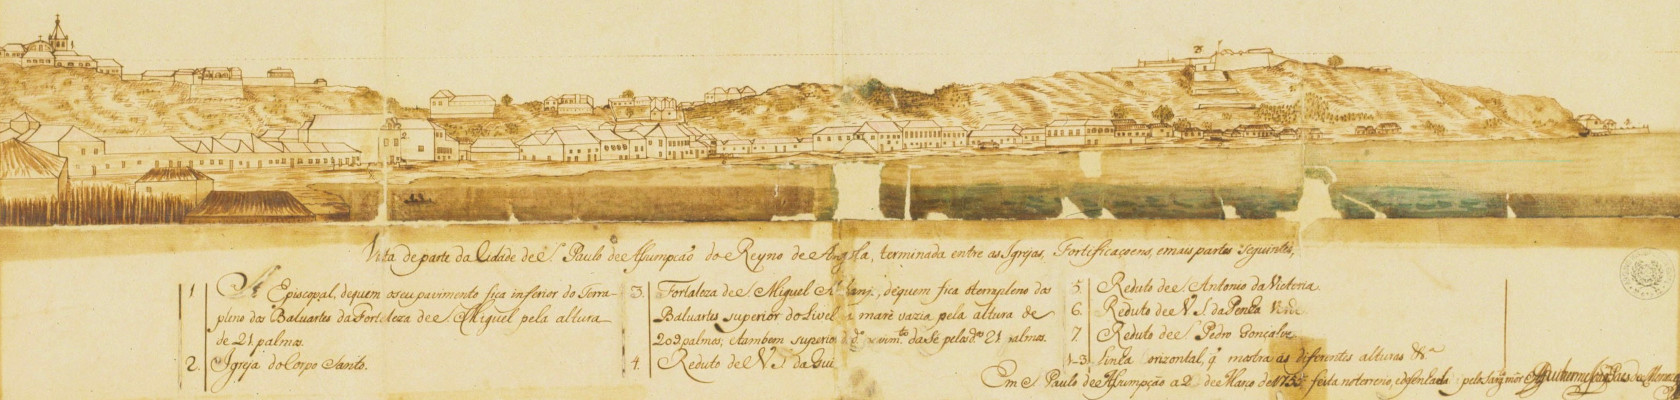 Vista de parte da Cidade de S. Paulo de Assumpcaõ do Reyno de Angola, terminada entre as Igrejas, Fortificaçoens, e mais partes seguintes,
1 Sé Episcopal, de quem o seu pavimento fica inferior do Terra-
pleno dos Baluartes da Fortaleza de S. Miguel pela altura
de 21 palmos.
2. Igreja do Corpo Santo.
3. Fortaleza de S. Miguel, de quem fica o terrapleno dos
Baluartes superior do Livel a maré vazia pela altura de
209 palmos; e tambem superior da Sé pelos dos 21 palmos.
4. Reducto de N. S. da Gui
5 Reduto de S. Antonio da Victoria.
6. Reduto de N. S. da Penha
7. Reduto de S. Pedro Gonçalve
1-3. Linha orizontal, q' mostra as diferentes alturas &a
Em S. Paulo de Assumpção a 2 de Março de 1755 feita no terreno, e desenhada pelo Sarg. mór Guilherme
28